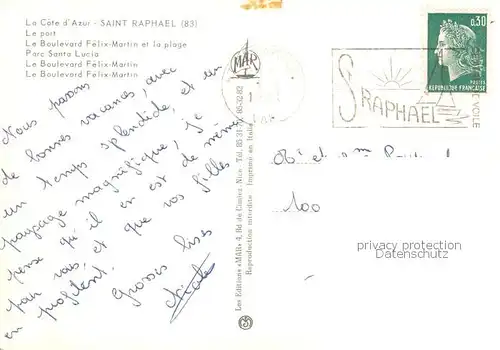 La Côte d'Azur - SAINT RAPHAEL (83)
Le port
Le Boulevard Félix-Martin et la plage
Parc Santa Lucia
Le Boulevard Félix-Martin
Le Boulevard Félix-Martin
Nous passons
de bonnes vacances, avec
un temps splendide, et un
paysage magnifique, je
pense qu'il en est de même
pour vous, et que vos filles
en profitent.
Grosses bises
Les Editions «MAR» 4, Bd de Cimiez, Nice Tél. 85
Reproduction interdite Imprimé en Italie
MAR
VAR
S RAPHAEL
VOILE
0,30
POSTES
REPUBLIQUE FRANÇAISE
100
privacy protection
Datenschutz